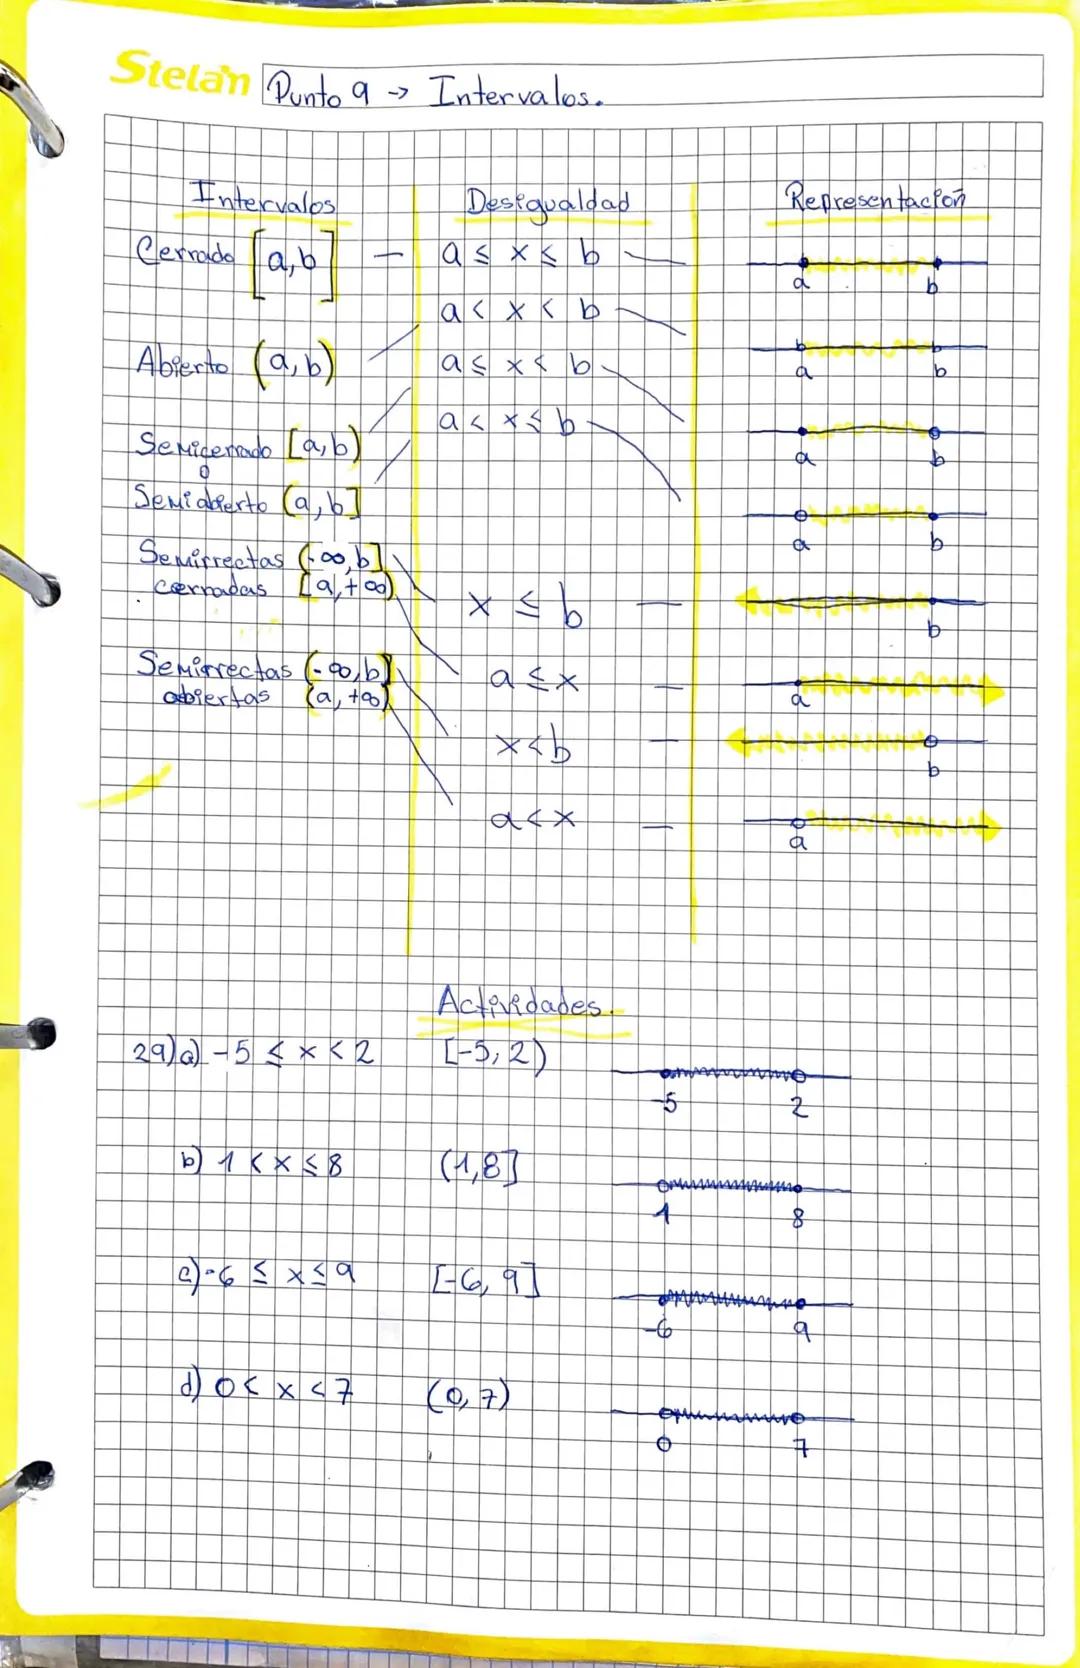 Stelan
Punto 9 → Intervalos.
Intervalos Desigualdad Representación
Cerrado [a,b] — a ≤ x ≤ b — a b
a < x < b
Abierto (a,b) a ≤ x < b a b
a < x ≤ b
Semicerrado [a,b) a b
o
Semiabierto (a,b] a b
Semirrectas (-∞,b]
cerradas [a,+∞) x ≤ b — b
Semirrectas (-∞,b) a ≤ x — a
abiertas (a,+∞)
x<b — b
a<x — a
Actividades.
29)a) -5 ≤ x < 2 [-5,2) -5 2
b) 1 < x ≤ 8 (1,8] 1 8
c) -6 ≤ x ≤ 9 [-6,9] -6 9
d) 0 < x < 7 (0,7) 0 7